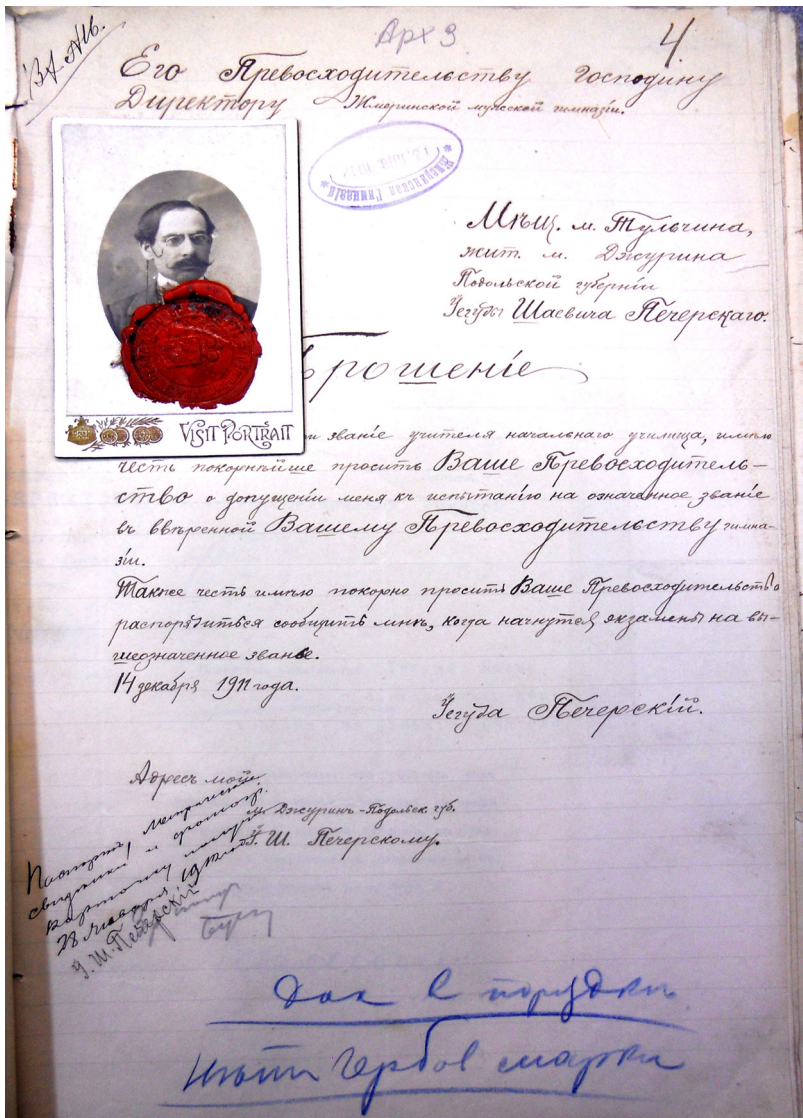 Арх 3
4
Его Превосходительству Господину
Директору Жмеринской мужской гимназіи.
Жмеринская Гимназія
Мѣщ. м. Тульчина,
жит. м. Джурина
Подольской губерніи
Іегуды Шаевича Печерскаго.
Прошеніе
званіе учителя начальнаго училища, имѣю
честь покорнѣйше просить Ваше Превосходитель-
ство о допущеніи меня къ испытанію на означенное званіе
въ ввѣренной Вашему Превосходительству гимна-
зіи.
Также честь имѣю покорно просить Ваше Превосходительство
распорядиться сообщить мнѣ, когда начнутся экзамены на вы-
шеозначенное званье.
14 декабря 1911 года.
Іегуда Печерскій.
Адресъ мой:
м. Джуринъ-Подольск. губ.
І. Ш. Печерскому.
Паспортъ, метрическ.
свидѣт. и фотогр.
карточку получ.
28 Января 1912
І. Ш. Печерскій
VISIT PORTRAIT